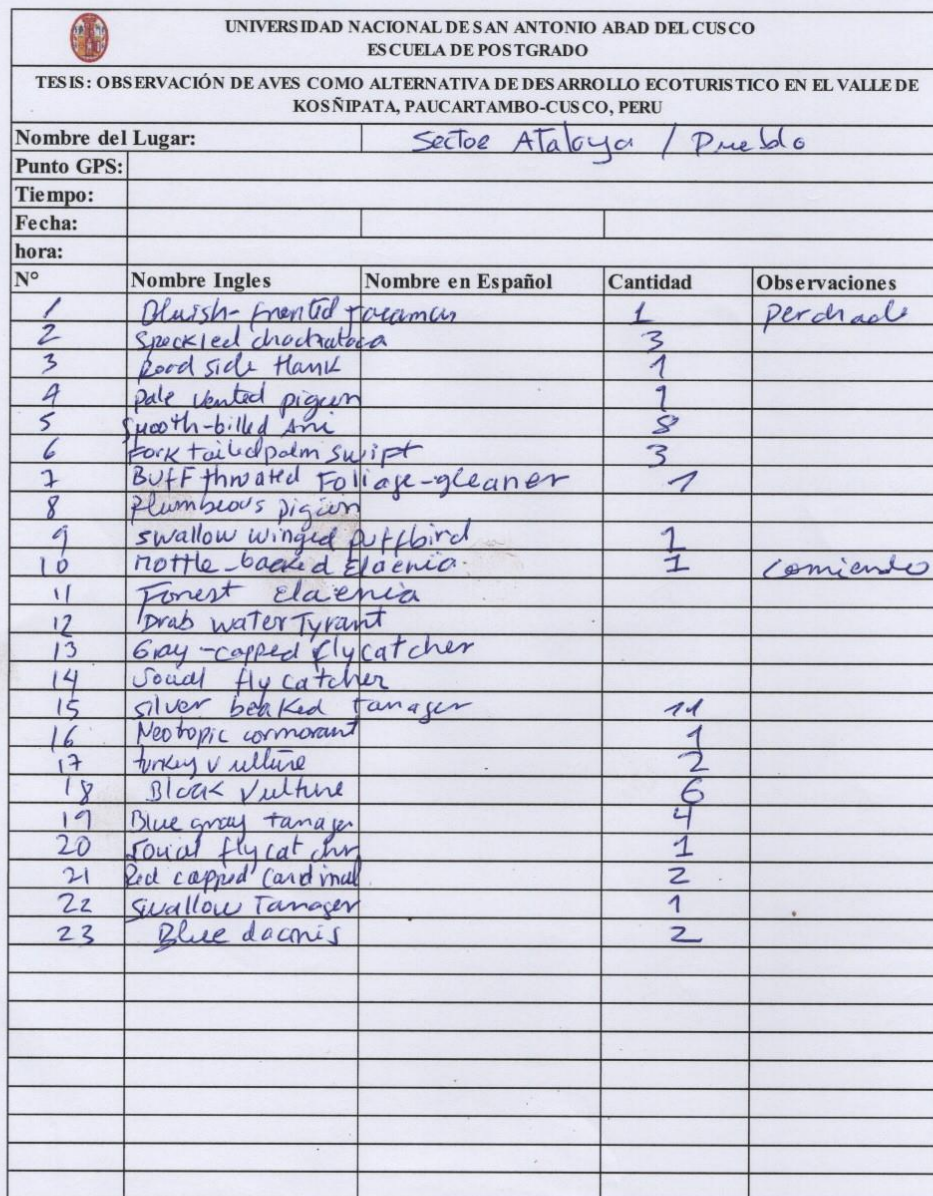 UNIVERSIDAD NACIONAL DE SAN ANTONIO ABAD DEL CUSCO
ESCUELA DE POSTGRADO
TESIS: OBSERVACIÓN DE AVES COMO ALTERNATIVA DE DESARROLLO ECOTURISTICO EN EL VALLE DE
KOSÑIPATA, PAUCARTAMBO-CUSCO, PERU
Nombre del Lugar: Sector Atalaya / Pueblo
Punto GPS:
Tiempo:
Fecha:
hora:
N° Nombre Ingles Nombre en Español Cantidad Observaciones
1 Bluish-fronted Jacamar 1 Perchado
2 Speckled chachalaca 3
3 Road side Hawk 1
4 pale vented pigeon 1
5 Smooth-billed Ani 8
6 Fork tailed palm swift 3
7 Buff throated Foliage-gleaner 1
8 Plumbeous pigeon
9 swallow winged puffbird 1
10 mottle-backed Elaenia 1 comiendo
11 Forest elaenia
12 Drab water Tyrant
13 Gray-capped flycatcher
14 Social flycatcher
15 silver beaked tanager 11
16 Neotropic cormorant 1
17 turkey vulture 2
18 Black Vulture 6
19 Blue gray tanager 4
20 Social flycatcher 1
21 Red capped Cardinal 2
22 Swallow Tanager 1
23 Blue dacnis 2